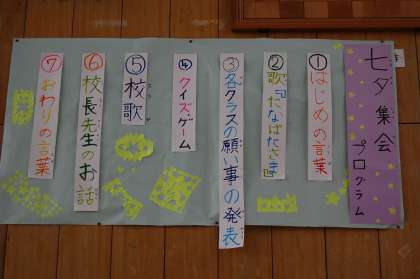 七夕集会
プログラム
①はじめの言葉
②歌『たなばたさま』
③各クラスの願い事の発表
④クイズゲーム
⑤校歌
⑥校長先生のお話
⑦おわりの言葉